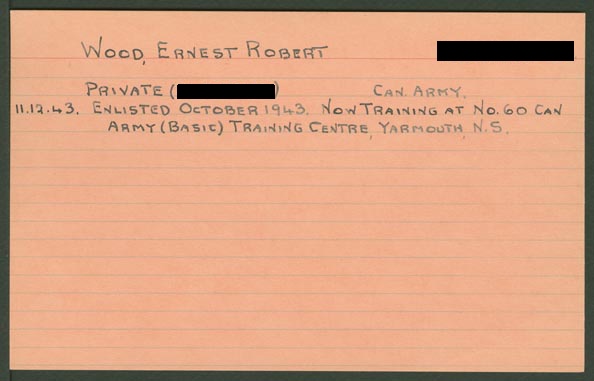 WOOD, ERNEST ROBERT
PRIVATE ( ) CAN. ARMY.
11.12.43. ENLISTED OCTOBER 1943. NOW TRAINING AT NO. 60 CAN
ARMY (BASIC) TRAINING CENTRE, YARMOUTH, N.S.